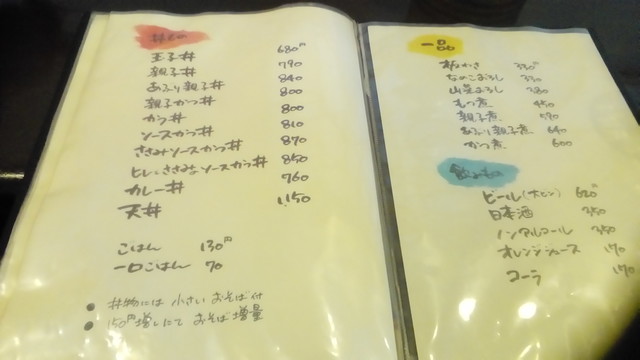 丼もの
玉子丼 680円
親子丼 790
あぶり親子丼 840
親子かつ丼 800
かつ丼 800
ソースかつ丼 810
ささみソースかつ丼 870
ヒレとささみのソースかつ丼 850
カレー丼 760
天丼 1,150
ごはん 130円
一口ごはん 70
● 丼物には 小さい おそば付
● 150円増しにて おそば増量
一品
板わさ 330円
なめこおろし 330
山菜おろし 380
もつ煮 450
親子煮 590
あぶり親子煮 640
かつ煮 600
飲みもの
ビール(大ビン) 620円
日本酒 350
ノンアルコール 350
オレンジジュース 170
コーラ 170